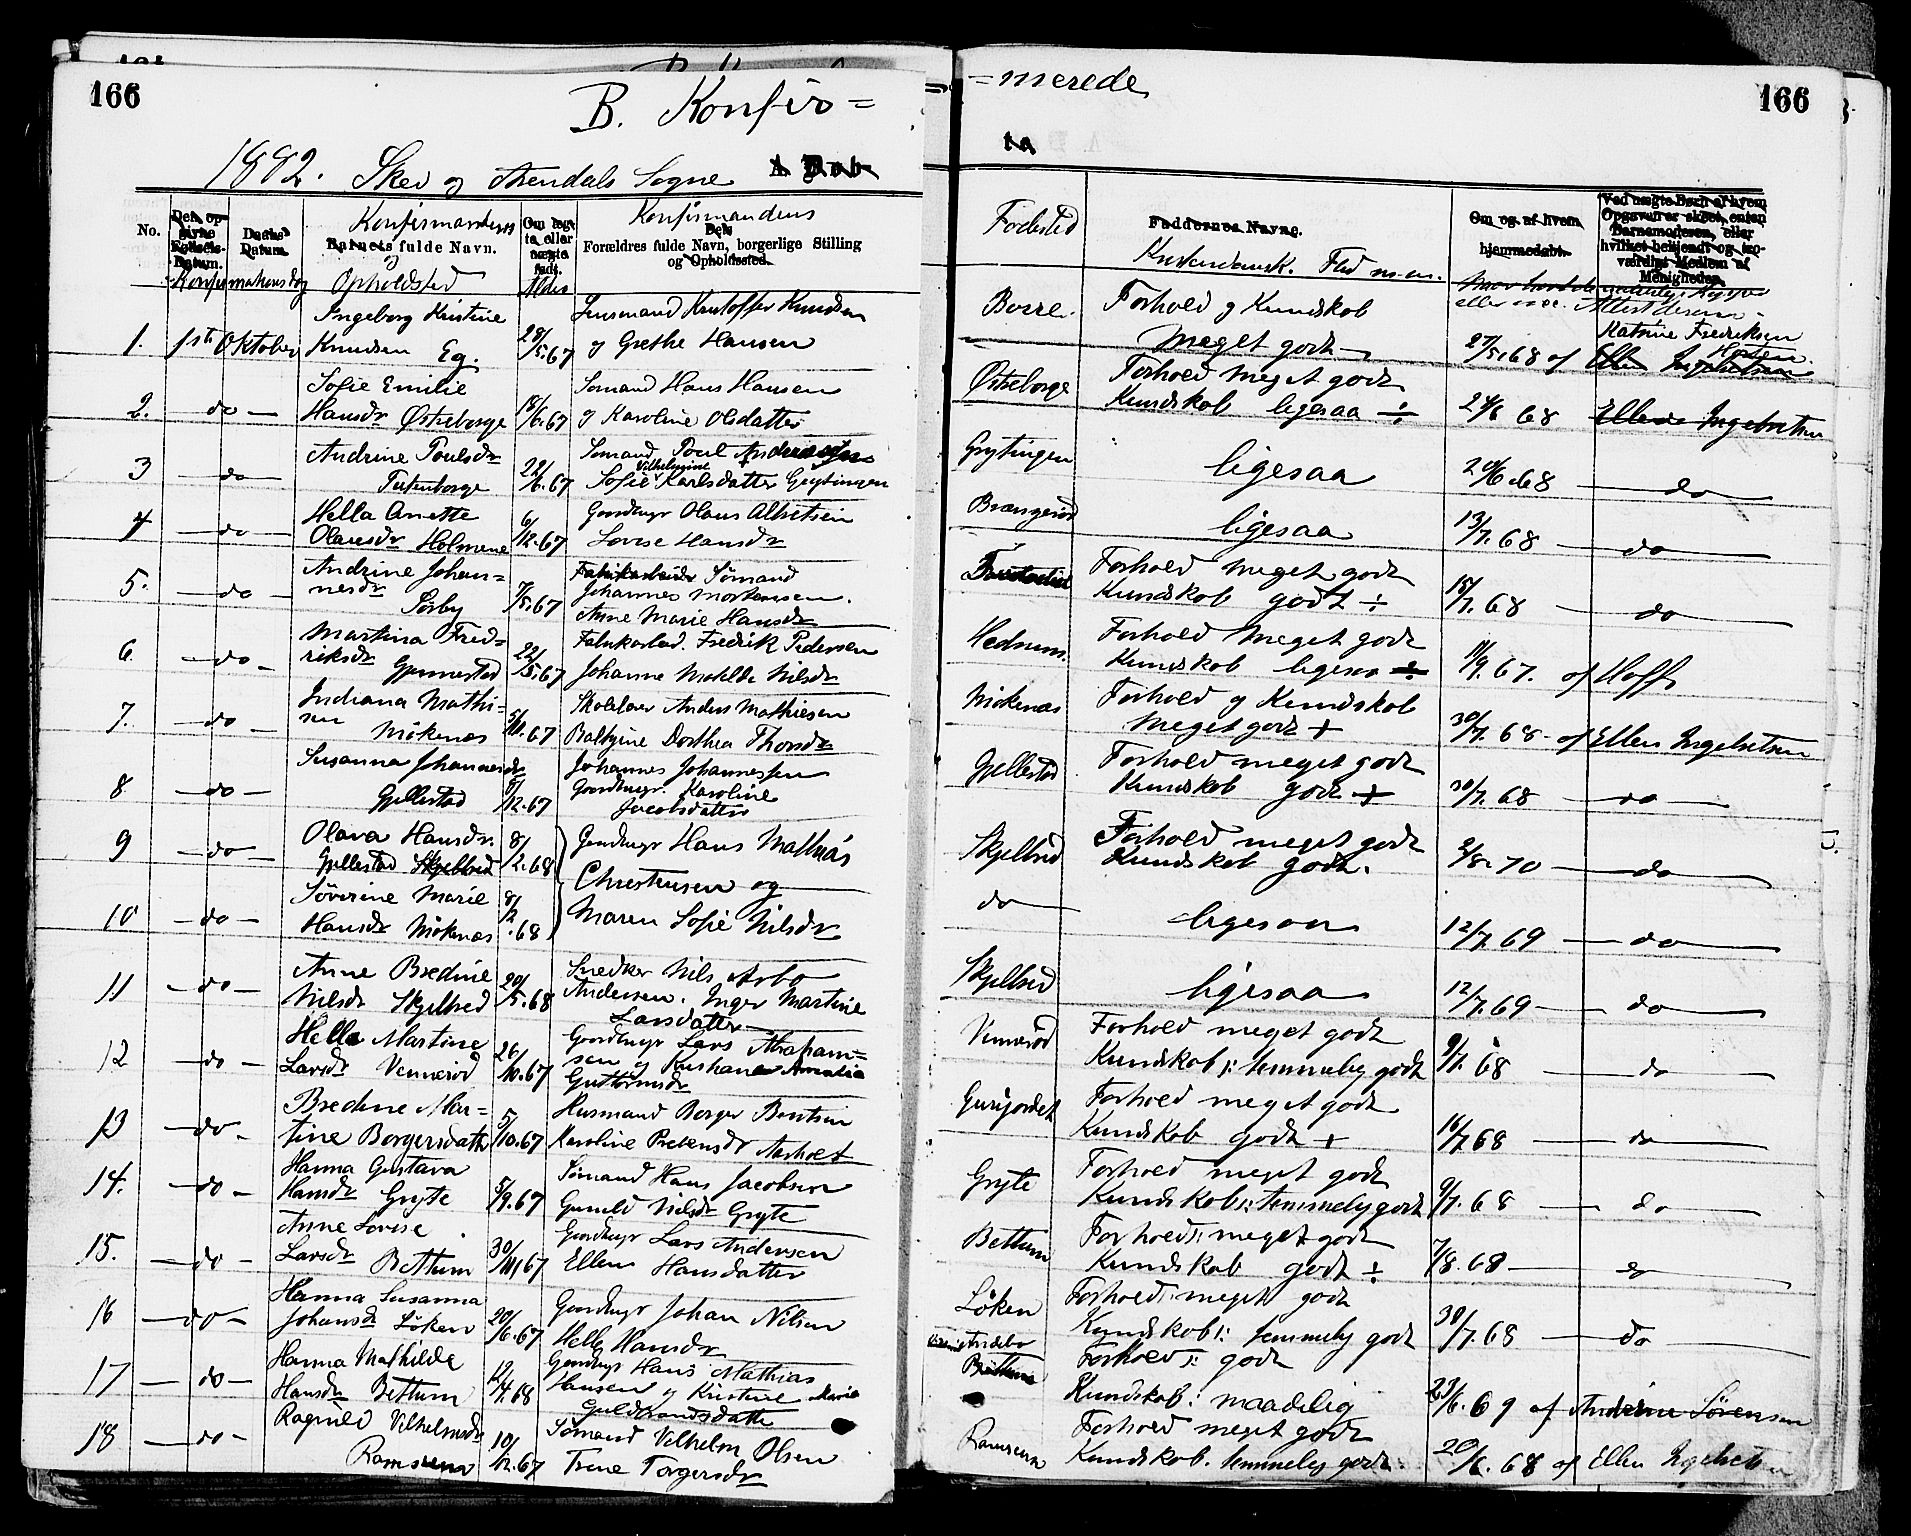 166
B. Konfir=
=merede
166
1882. Skei og Arendals Sogne A Døb
te
No.
Den op-
givne
Fødsels-
Datum.
Daabs
Datum.
Konfirmationsdag
Konfirmandens
Barnets fulde Navn.
og
Opholdsted
Om ægte
eller
uægte
født.
Alder
Konfirmandens
Dets
Forældres fulde Navn, borgerlige Stilling
og Opholdssted.
Fødested
Faddernes Navne.
Om og af hvem
hjemmedøbt.
Ved uægte Børn af hvem
Opgaven er skeet, enten
Barnemoderen, eller
hvilket bekjendt og tro-
værdigt Medlem af
Menigheden.
1. 1ste Oktober
Ingeborg Kristine
Knudsen Eg.
28/5.67
Kristoffer Knudsen
og Grethe Hansen
Borre.
Forhold og Kundskab
meget godt
27/5.68 af
Katrine Fredriksen
Ellen Ingebretsen
2. do
Sofie Emilie
Hansdr Østreborge
18/6.67
Sømand Hans Hansen
og Karoline Olsdatter
Østreborge
Forhold meget godt
Kundskab ligesaa ÷
24/6 68
Ellen Ingebretsen
3 do
Andrine Poulsdr
22/6.67
Sømand Poul Andreasen
Vilhelmine
Sofie Karlsdatter Grytingen
Grytingen
ligesaa
20/6.68 do
4 do
Hella Anette
Olausdr Holmene
6/12.67
Gaardbruger Olaus Albretsen
Lovise Hansdr
ligesaa
13/7.68 do
5. do
Andrine Johan=
nesdr Sörby
7/8.67
Fabrikarbeider Sömand
Johannes Mortensen.
Anne Marie Hansdr
Forhold meget godt
Kundskab godt ÷
15/7.68 do
6 do
Martina Fred=
riksdr Gjennestad
22/5.67
Fabrikarbed. Fredrik Pedersen
Johanne Matilde Nilsdr
Hedrum.
Forhold meget godt
Kundskab ligesaa ÷
11/9.67. af Hoff
7. do
Indiana Mathi-
sen Mökenæs
5/10.67
Skolelærer Anders Mathiesen
Baltzine Dorthea Thorsdr
Mökenæs
Forhold og Kundskab
meget godt +
30/7.68 af Ellen Ingebretsen
8 do
Susanna Johannesdr
Gjellestad
9/12.67
Johannes Johannessen
Gaardbruger. Karoline
Jacobsdatter
Gjellestad
Forhold meget godt
Kundskab godt +
30/7.68 do
9 do
Olava Hansdr.
Gjellestad Skjelbred
8/2.68
Gaardbruger Hans Mathias
Skjelbred
Forhold meget godt
Kundskab godt.
2/8.70 do
10 do
Söverine Marie
Hansdr Mökenæs
8/2.68
Christensen og
Maren Sofie Nilsdr
do
ligesaa
12/7.69 do
11 do
Anne Bredine
Nilsdr Skjelbred
20/5.68
Snedker Nils Arbo
Andersen. Inger Martine
Larsdatter
Skjelbred
ligesaa
12/7.69 do
12 do
Hella Martine
Larsdr Vennerød
26/10.67
Gaardbruger Lars Abraham=
sen og Kristiane Amalie
Guttormsdr
Vennerød
Forhold meget godt
Kundskab: temmelig godt
9/7.68 do
13 do
Bredine Mar=
tine Borgersdatter
5/10.67
Husmand Borger Bentsen
Karoline Pretensdr Aarholt
Forhold meget godt
Kundskab godt +
16/7.68 do
14. do
Hanna Gustava
Hansdr Gryte
5/9.67
Sömand Hans Jacobsen
Gunild Nielsdr Gryte
Gryte
Forhold meget godt
Kundskab: temmelig godt
9/7.68 do
15. do
Anne Lovise
Larsdr Bettum
30/11 67
Gaardbruger Lars Andersen
Ellen Hansdatter
Bettum
Forhold: meget godt
Kundskab godt ÷
7/8.68 do
16 do
Hanna Susanna
Johansdr Löken
20/6.67
Gaardbruger Johan Nilsen
Helle Hansdr
Löken
Forhold: meget godt
Kundskab: temmelig godt
30/7.68 do
17 do
Hanna Mathilde
Hansdr Bettum
12/4.68
Gaardbruger Hans Mathias
Hansen og Kristine Marie
Guldbrandsdatter
Andebo
Bettum
Forhold: godt
Kundskab: maadelig
23/6.69 af Andrine Sörensen
18 do
Ragnild Vilhelmsdr
Ramsrum
10/12.67
Sömand Vilhelm Olsen
Trine Torgersdr
Ramsrum
Forhold meget godt
Kundskab. temmelig godt
20/6.68 af Ellen Ingebretsen